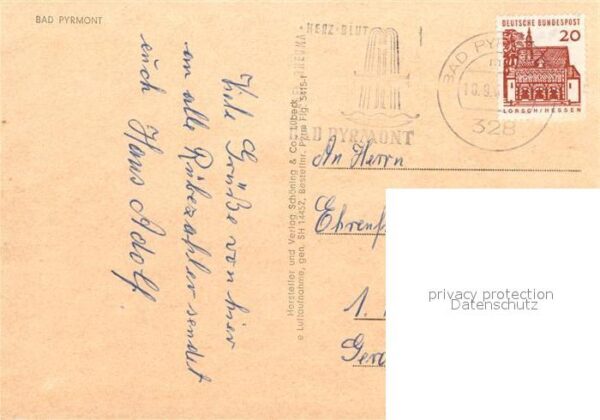 BAD PYRMONT
Viele Grüße von hier
an alle Rübezahler sendet
euch Hans Adolf.
Hersteller und Verlag Schöning & Co., Lübeck
e Luftaufnahme, gen. SH 14452, Bestellnr. Pyrm Flg. 5415-f
HERZ-BLUT
RHEUMA
BAD PYRMONT
BAD PY
10.9.
328
DEUTSCHE BUNDESPOST
20
LORSCH/HESSEN
An Herrn
Ehrenf
1.
Ger
privacy protection
Datenschutz